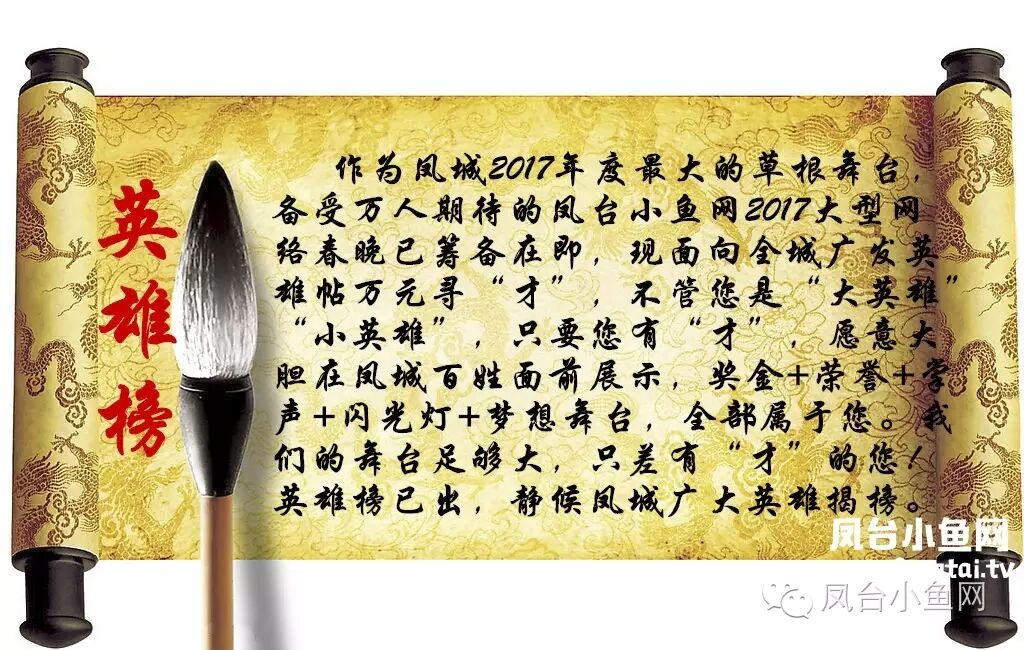 英雄榜
作为凤城2017年度最大的草根舞台,
备受万人期待的凤台小鱼网2017大型网
络春晚已筹备在即,现面向全城广发英
雄帖万元寻“才”,不管您是“大英雄”
“小英雄”,只要您有“才”,愿意大
胆在凤城百姓面前展示,奖金+荣誉+掌
声+闪光灯+梦想舞台,全部属于您。我
们的舞台足够大,只差有“才”的您!
英雄榜已出,静候凤城广大英雄揭榜。
凤台小鱼网
tai.tv
凤台小鱼网